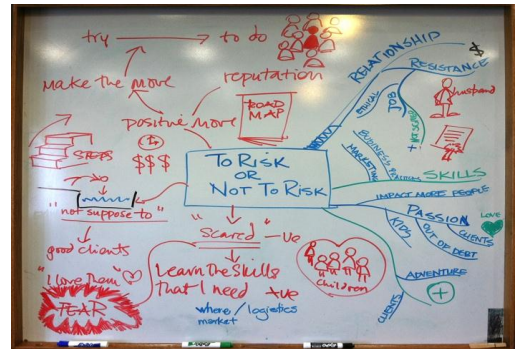 try → to do
make the move
reputation
positive move
ROAD
MAP
STEPS
$$$
"not suppose to"
good clients
"I love them"
FEAR
TO RISK
OR
NOT TO RISK
"Scared" -ve
Learn the skills
that I need +ve
where / logistics
market
children
RELATIONSHIP
$
RESISTANCE
ETHICAL
JOB
husband
BUSINESS
MARKETING
SKILLS
IMPACT MORE PEOPLE
PASSION
LOVE
KIDS
OUT OF DEBT
CLIENTS
ADVENTURE
+
CLIENTS